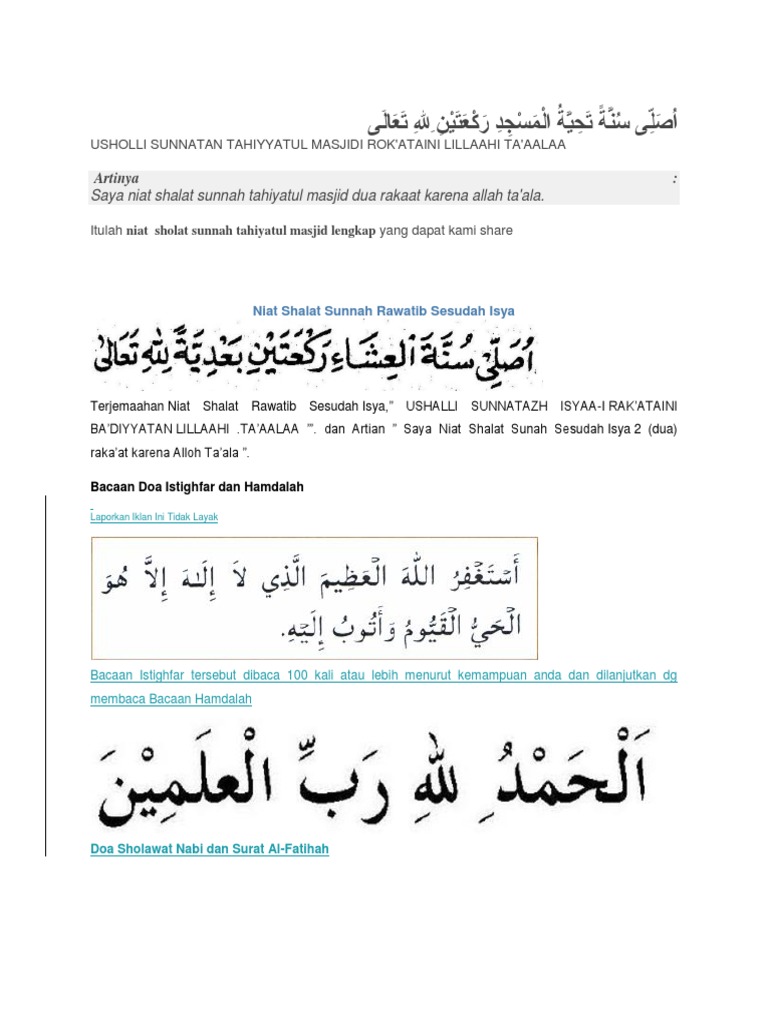 أُصَلِّى سُنَّةً تَحِيَّةُ الْمَسْجِدِ رَكْعَتَيْنِ ِللهِ تَعَالَى
USHOLLI SUNNATAN TAHIYYATUL MASJIDI ROK'ATAINI LILLAAHI TA'AALAA
Artinya :
Saya niat shalat sunnah tahiyatul masjid dua rakaat karena allah ta'ala.
Itulah niat sholat sunnah tahiyatul masjid lengkap yang dapat kami share
Niat Shalat Sunnah Rawatib Sesudah Isya
اُصَلِّيْ سُنَّةَ الْعِشَاءِ رَكْعَتَيْنِ بَعْدِيَّةً لِلّٰهِ تَعَالٰى
Terjemaahan Niat Shalat Rawatib Sesudah Isya,” USHALLI SUNNATAZH ISYAA-I RAK’ATAINI
BA’DIYYATAN LILLAAHI .TA’AALAA ’”. dan Artian ” Saya Niat Shalat Sunah Sesudah Isya 2 (dua)
raka’at karena Alloh Ta’ala ”.
Bacaan Doa Istighfar dan Hamdalah
Laporkan Iklan Ini Tidak Layak
أَسْتَغْفِرُ اللهَ الْعَظِيمَ الَّذِي لاَ إِلَـٰهَ إِلاَّ هُوَ
الْحَيُّ الْقَيُّومُ وَأَتُوبُ إِلَيْهِ.
Bacaan Istighfar tersebut dibaca 100 kali atau lebih menurut kemampuan anda dan dilanjutkan dg
membaca Bacaan Hamdalah
اَلْحَمْدُ ِللهِ رَبِّ الْعلَمِيْنَ
Doa Sholawat Nabi dan Surat Al-Fatihah